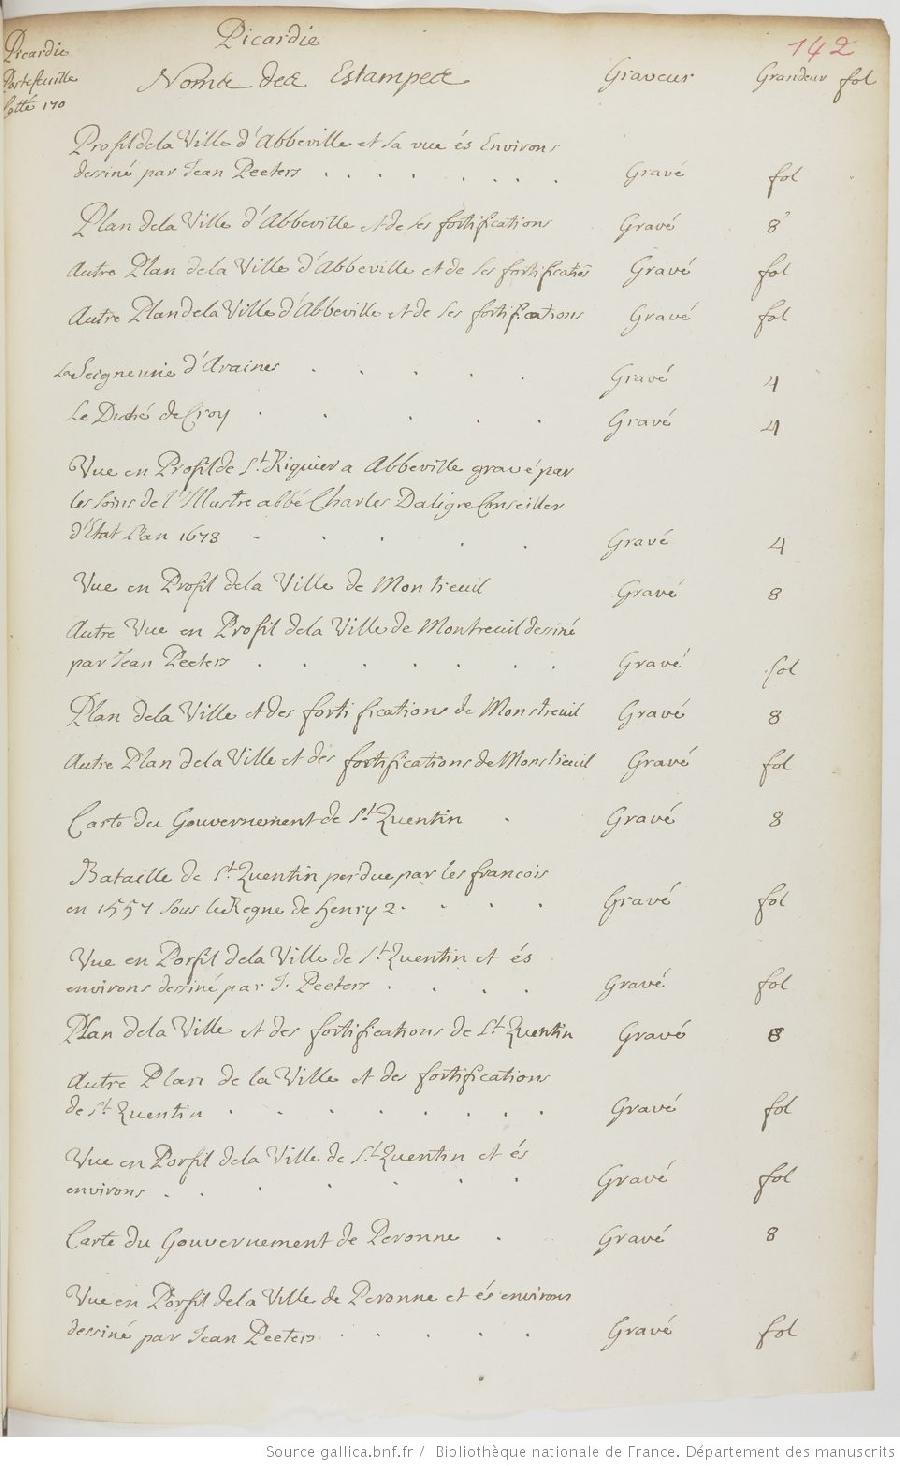 Picardie
Portefeuille
Cotté 170
Picardie
142
Noms des Estampes Graveur Grandeur fol
Profil de la Ville d'Abbeville et sa vue és Environs
dessiné par Jean Peeters . . . . . . . . Gravé fol
Plan de la Ville d'Abbeville et de ses fortifications Gravé 8°
Autre Plan de la Ville d'Abbeville et de ses fortificatiōs Gravé fol
Autre Plan de la Ville d'Abbeville et de ses fortifications Gravé fol
La Seigneurie d'Araines . . . . . Gravé 4
Le Duché de Croy . . . . . Gravé 4
Vue en Profil de St. Riquier a Abbeville gravé par
les soins de l'Illustre abbé Charles Daligre Conseiller
d'Etat l'an 1678 . . . . . Gravé 4
Vue en Profil de la Ville de Montreuil Gravé 8
Autre Vue en Profil de la Ville de Montreuil dessiné
par Jean Peeters . . . . . . . Gravé fol
Plan de la Ville et des fortifications de Monstreuil Gravé 8
Autre Plan de la Ville et des fortifications de Monstreuil Gravé fol
Carte du Gouvernement de St. Quentin . Gravé 8
Bataille de St. Quentin perdue par les francois
en 1557 sous le Regne de Henry 2. . . . . Gravé fol
Vue en Porfil de la Ville de St. Quentin et és
environs dessiné par J. Peeters . . . . Gravé fol
Plan de la Ville et des fortifications de St. Quentin Gravé 8
Autre Plan de la Ville et des fortifications
de St. Quentin . . . . . . . . Gravé fol
Vue en Porfil de la Ville de St. Quentin et és
environs . . . . . . . Gravé fol
Carte du Gouvernement de Peronne . Gravé 8
Vue en Porfil de la Ville de Peronne et és environs
dessiné par Jean Peeters . . . . . Gravé fol
Source gallica.bnf.fr / Bibliothèque nationale de France. Département des manuscrits